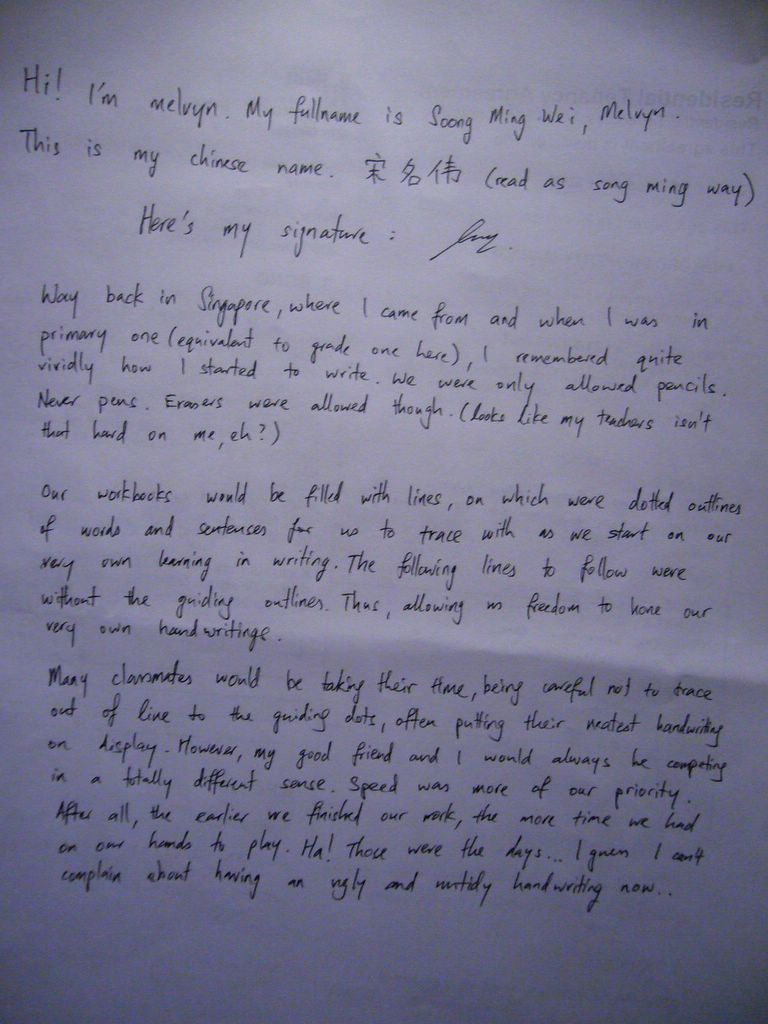 Hi! I'm melvyn. My fullname is Soong Ming Wei, Melvyn.
This is my chinese name. 宋名伟 (read as song ming way)
Here's my signature :
Way back in Singapore, where I came from and when I was in
primary one (equivalent to grade one here), I remembered quite
vividly how I started to write. We were only allowed pencils.
Never pens. Erasers were allowed though. (looks like my teachers isn't
that hard on me, eh?)
Our workbooks would be filled with lines, on which were dotted outlines
of words and sentences for us to trace with as we start on our
very own learning in writing. The following lines to follow were
without the guiding outlines. Thus, allowing us freedom to hone our
very own handwritings.
Many classmates would be taking their time, being careful not to trace
out of line to the guiding dots, often putting their neatest handwriting
on display. However, my good friend and I would always be competing
in a totally different sense. Speed was more of our priority.
After all, the earlier we finished our work, the more time we had
on our hands to play. Ha! Those were the days... I guess I can't
complain about having an ugly and untidy handwriting now..